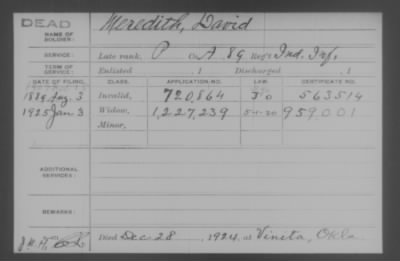 DEAD
NAME OF SOLDIER: Meredith, David
SERVICE: Late rank, P Co. A. 89 Reg't Ind. Inf.
TERM OF SERVICE: Enlisted , 1 Discharged , 1
DATE OF FILING. CLASS. APPLICATION NO. CERTIFICATE NO.
1889 Aug. 3 Invalid, 720,864 563514
1925 Jan 3 Widow, 1,227,239 959001
Minor,
ADDITIONAL SERVICES:
REMARKS:
Died Dec 28, 1924, at Vinita, Okla.